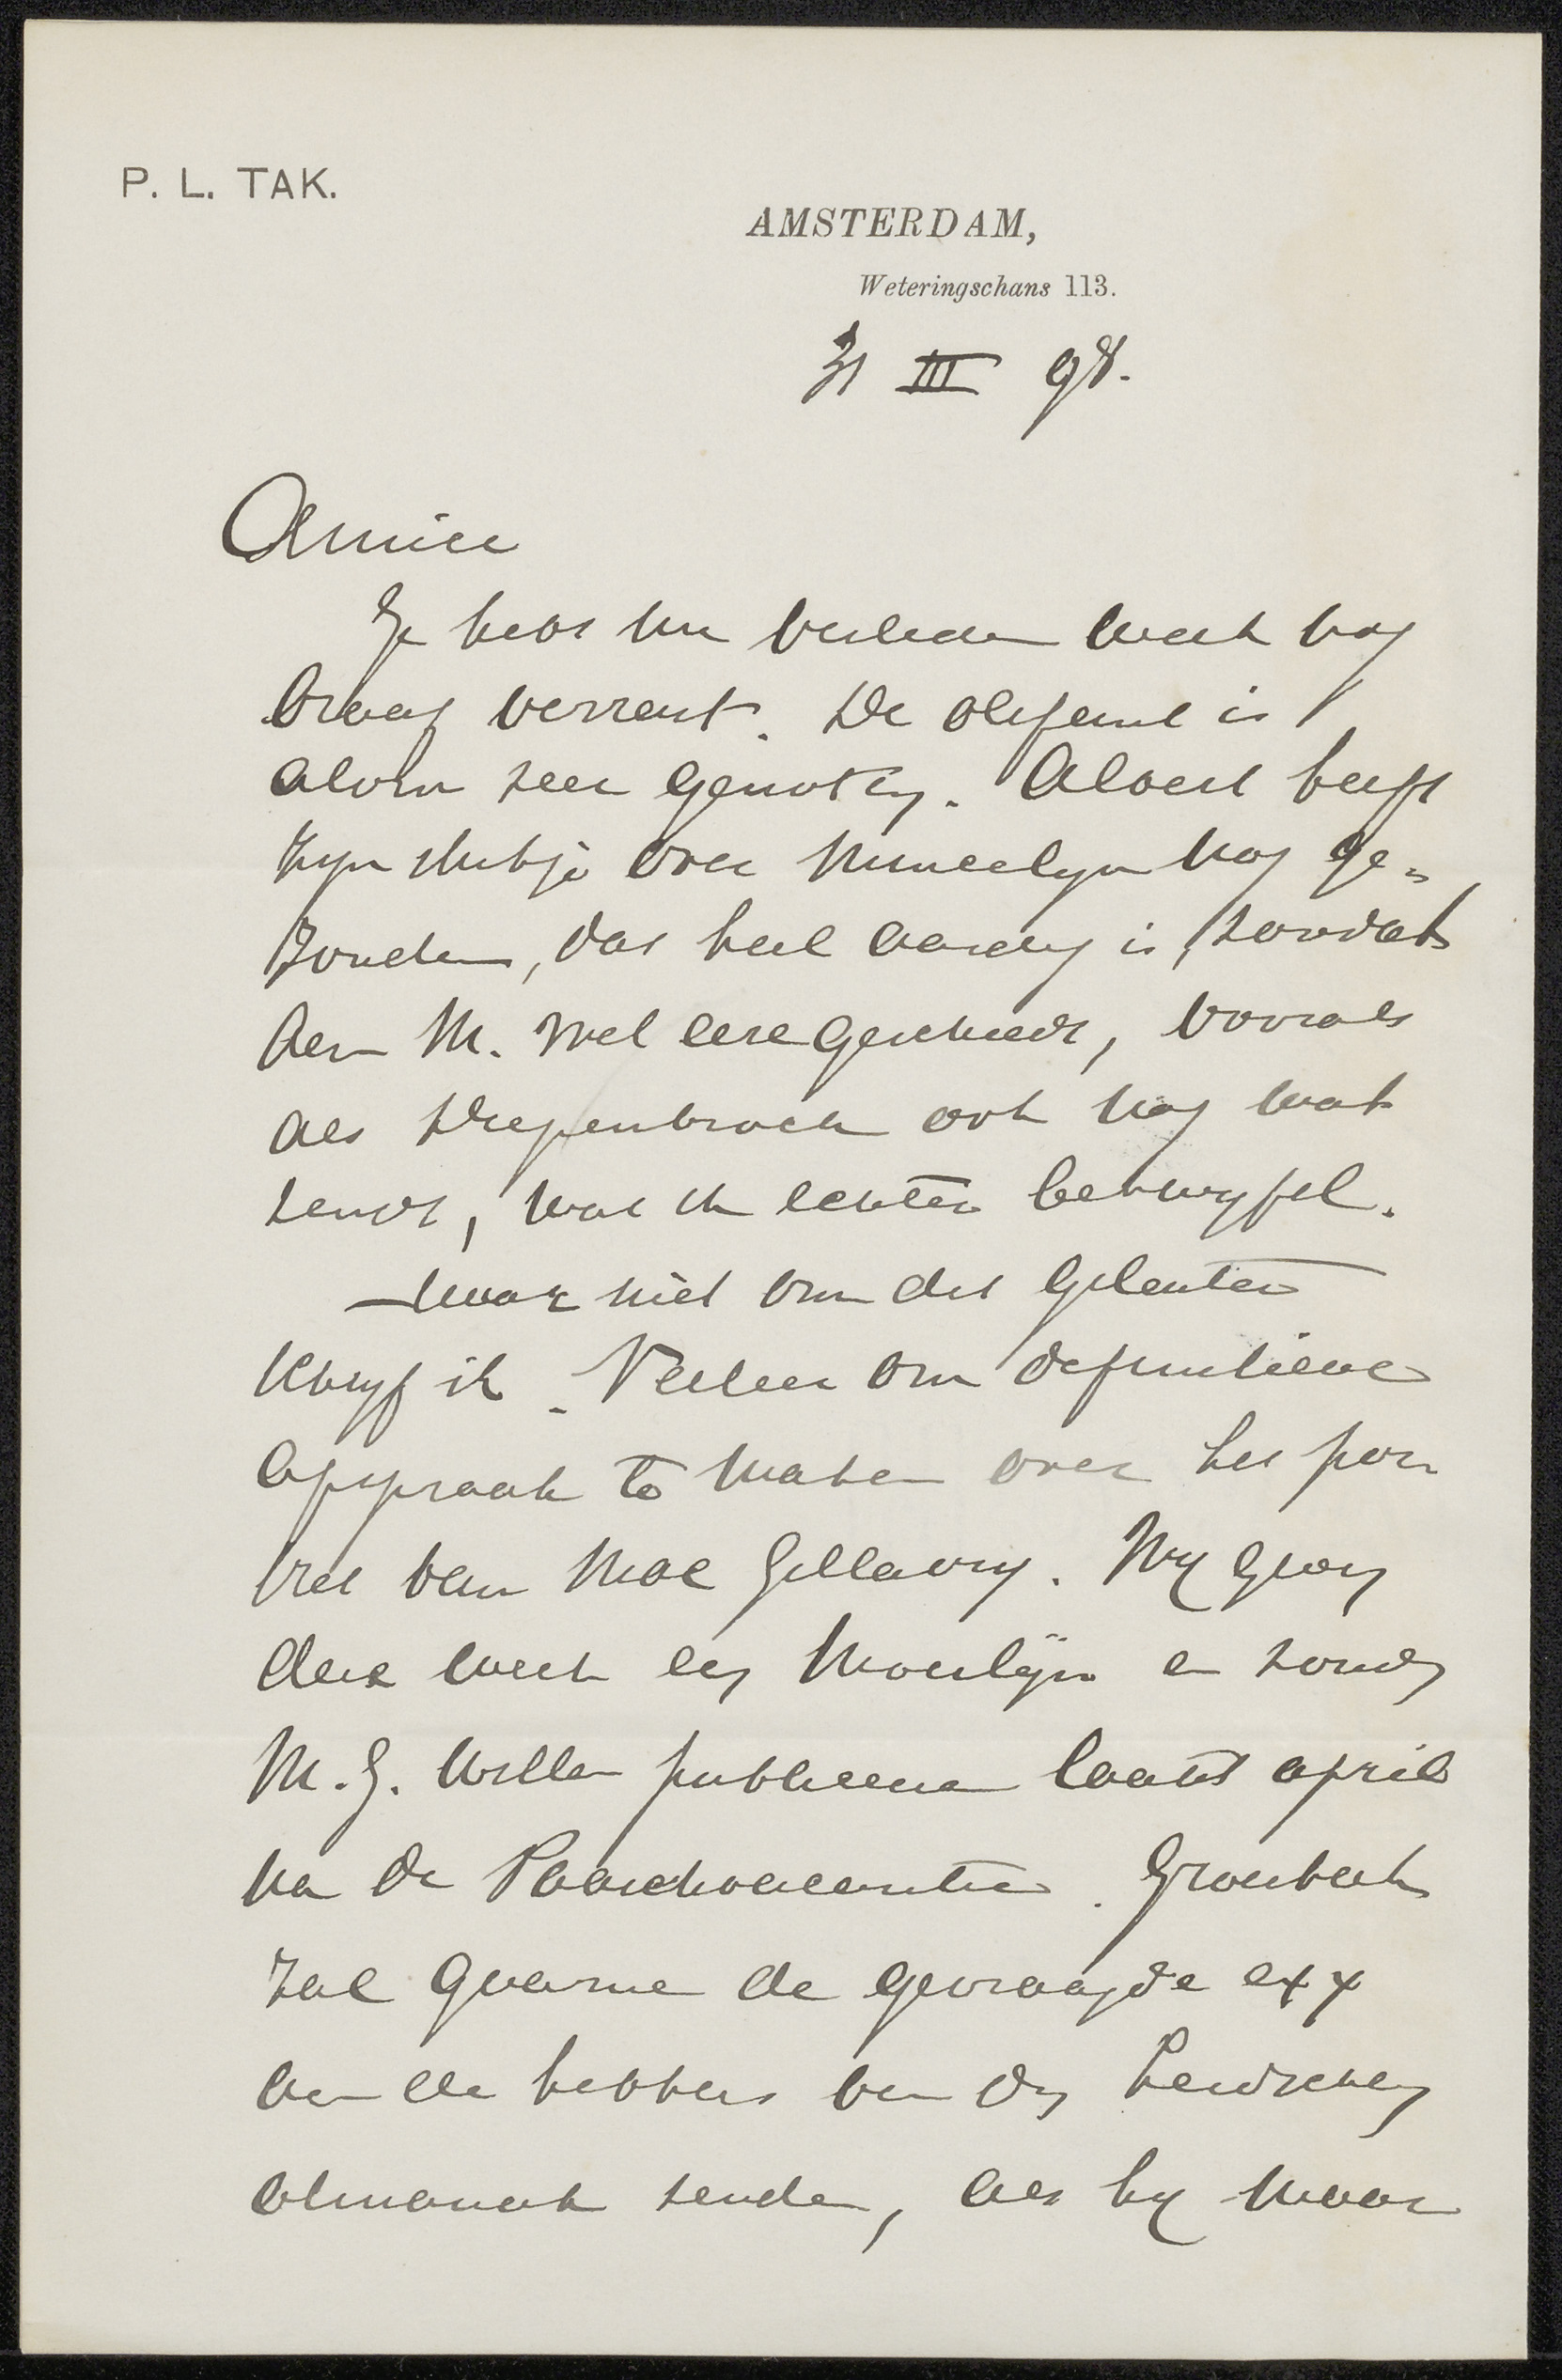 P. L. TAK.
AMSTERDAM,
Weteringschans 113.
31 III 98.
Amice
Je hebt me verleden week nog
braaf verrast. De olifant is
alvast zeer genottig. Albert heeft
zijn stukje over Mineelyn nog ge-
zonden, dat heel aardig is, zoodat
aan M. wel eere geschiedt, vooral
als Diepenbrock ook nog wat
zendt, wat ik echter betwijfel.
— Maar niet om dit
schryf ik. Veeleer om definitieve
afspraak te maken over het por
tret van Mac Gillavry. Wy
deze week by en
M. G. willen publiceeren laatst april
na de Paaschvacantie.
zal gaarne de gevraagde exx
aan de hebbers van den Leidschen
almanak zenden, als hy maar